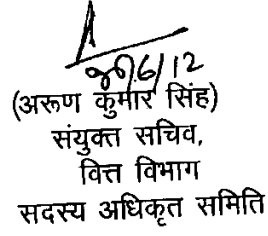 (अरूण कुमार सिंह)
संयुक्त सचिव,
वित्त विभाग
सदस्य अधिकृत समिति